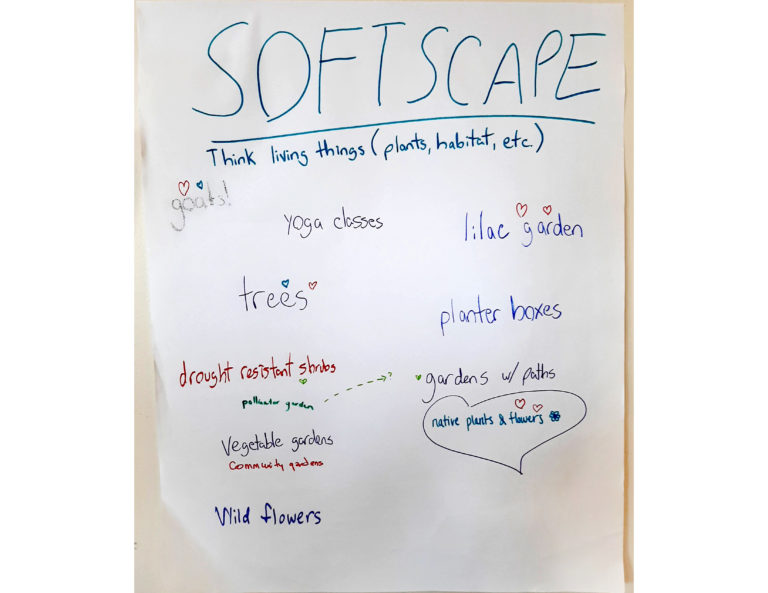 SOFTSCAPE
Think living things (plants, habitat, etc.)
goats!
yoga classes
lilac garden
trees
planter boxes
drought resistant shrubs
pollinator garden
?
gardens w/ paths
native plants & flowers
Vegetable gardens
Community gardens
Wild flowers